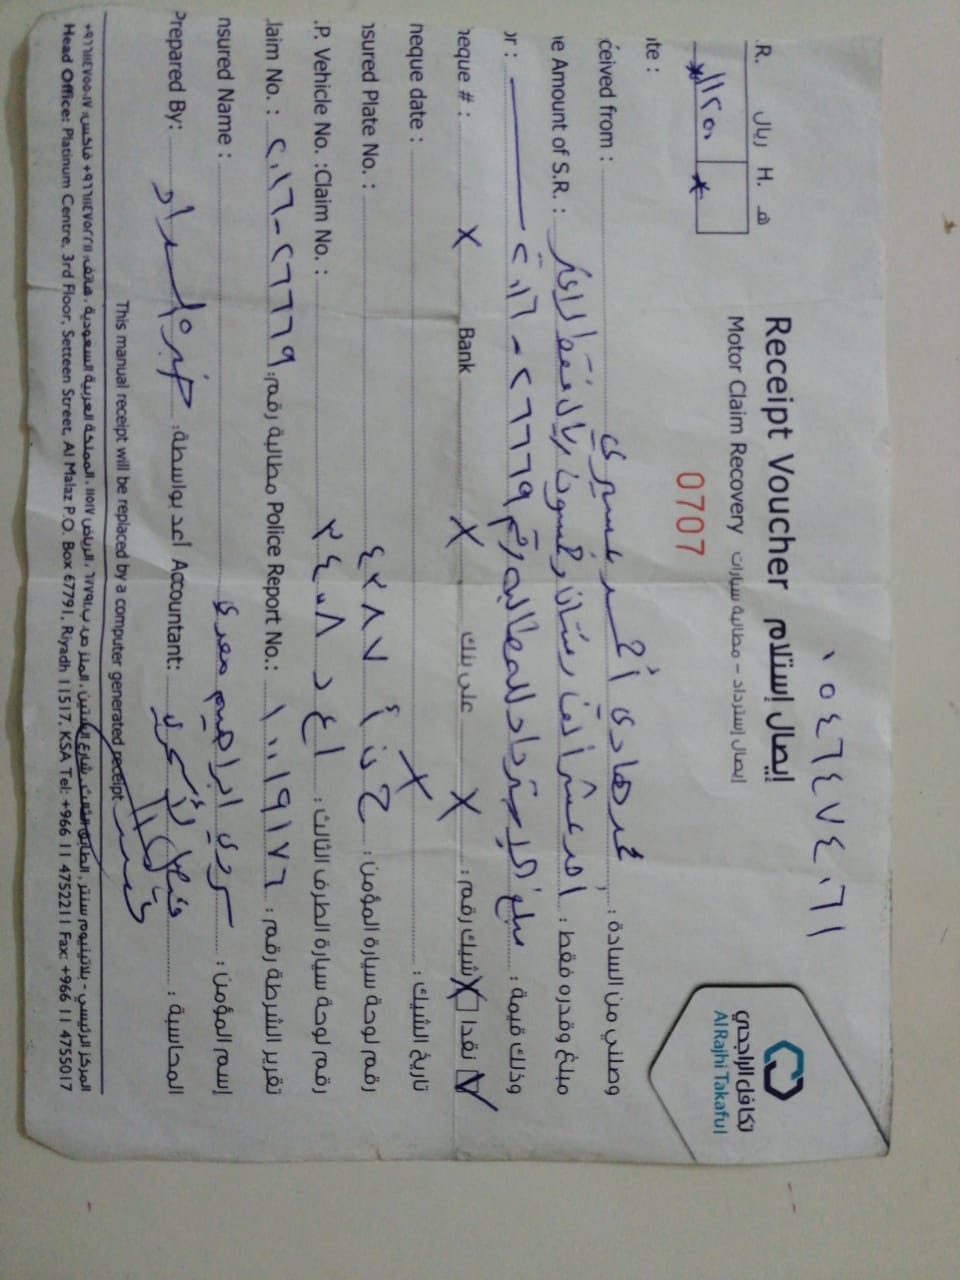 ٠٥٤٦٤٧٤٠٦١
تكافل الراجحي
Al Rajhi Takaful
Receipt Voucher إيصال إستلام
Motor Claim Recovery إيصال إسترداد - مطالبة سيارات
.R. ريال H. هـ
0707
ate :
ceived from : محمد هادي أحمد عسيري وصلني من السادة :
ne Amount of S.R. : احد عشر ألف ريال فقط لا غير مبلغ وقدره فقط :
or : ٢٠١٦ - ٢٦٦٦٩ مبلغ استرداد للمطالبة رقم وذلك قيمة :
heque # : X Bank X على بنك X شيك رقم : نقدا
heque date : X تاريخ الشيك :
nsured Plate No. : ح ن أ ٤٢٨٧ رقم لوحة سيارة المؤمن :
.P. Vehicle No. :Claim No. : رقم لوحة سيارة الطرف الثالث :
laim No. : ٢٠١٦-٢٦٦٦٩ مطالبة رقم: Police Report No.: ١٠٠١٩١٧٦ تقرير الشرطة رقم :
nsured Name : ابراهيم معدي إسم المؤمن :
Prepared By: اعد بواسطة: Accountant: المحاسبة :
This manual receipt will be replaced by a computer generated receipt
المركز الرئيسي - بلاتينيوم سنتر، الطابق الثالث، شارع الستين، الملز ص.ب ٦٧٧٩١، الرياض ١١٥١٧، المملكة العربية السعودية، هاتف: ٩٦٦١١٤٧٥٢٢١١+ فاكس: ٩٦٦١١٤٧٥٥٠١٧+
Head Office: Platinum Centre, 3rd Floor, Setteen Street, Al Malaz P.O. Box 67791, Riyadh 11517, KSA Tel: +966 11 4752211 Fax: +966 11 4755017